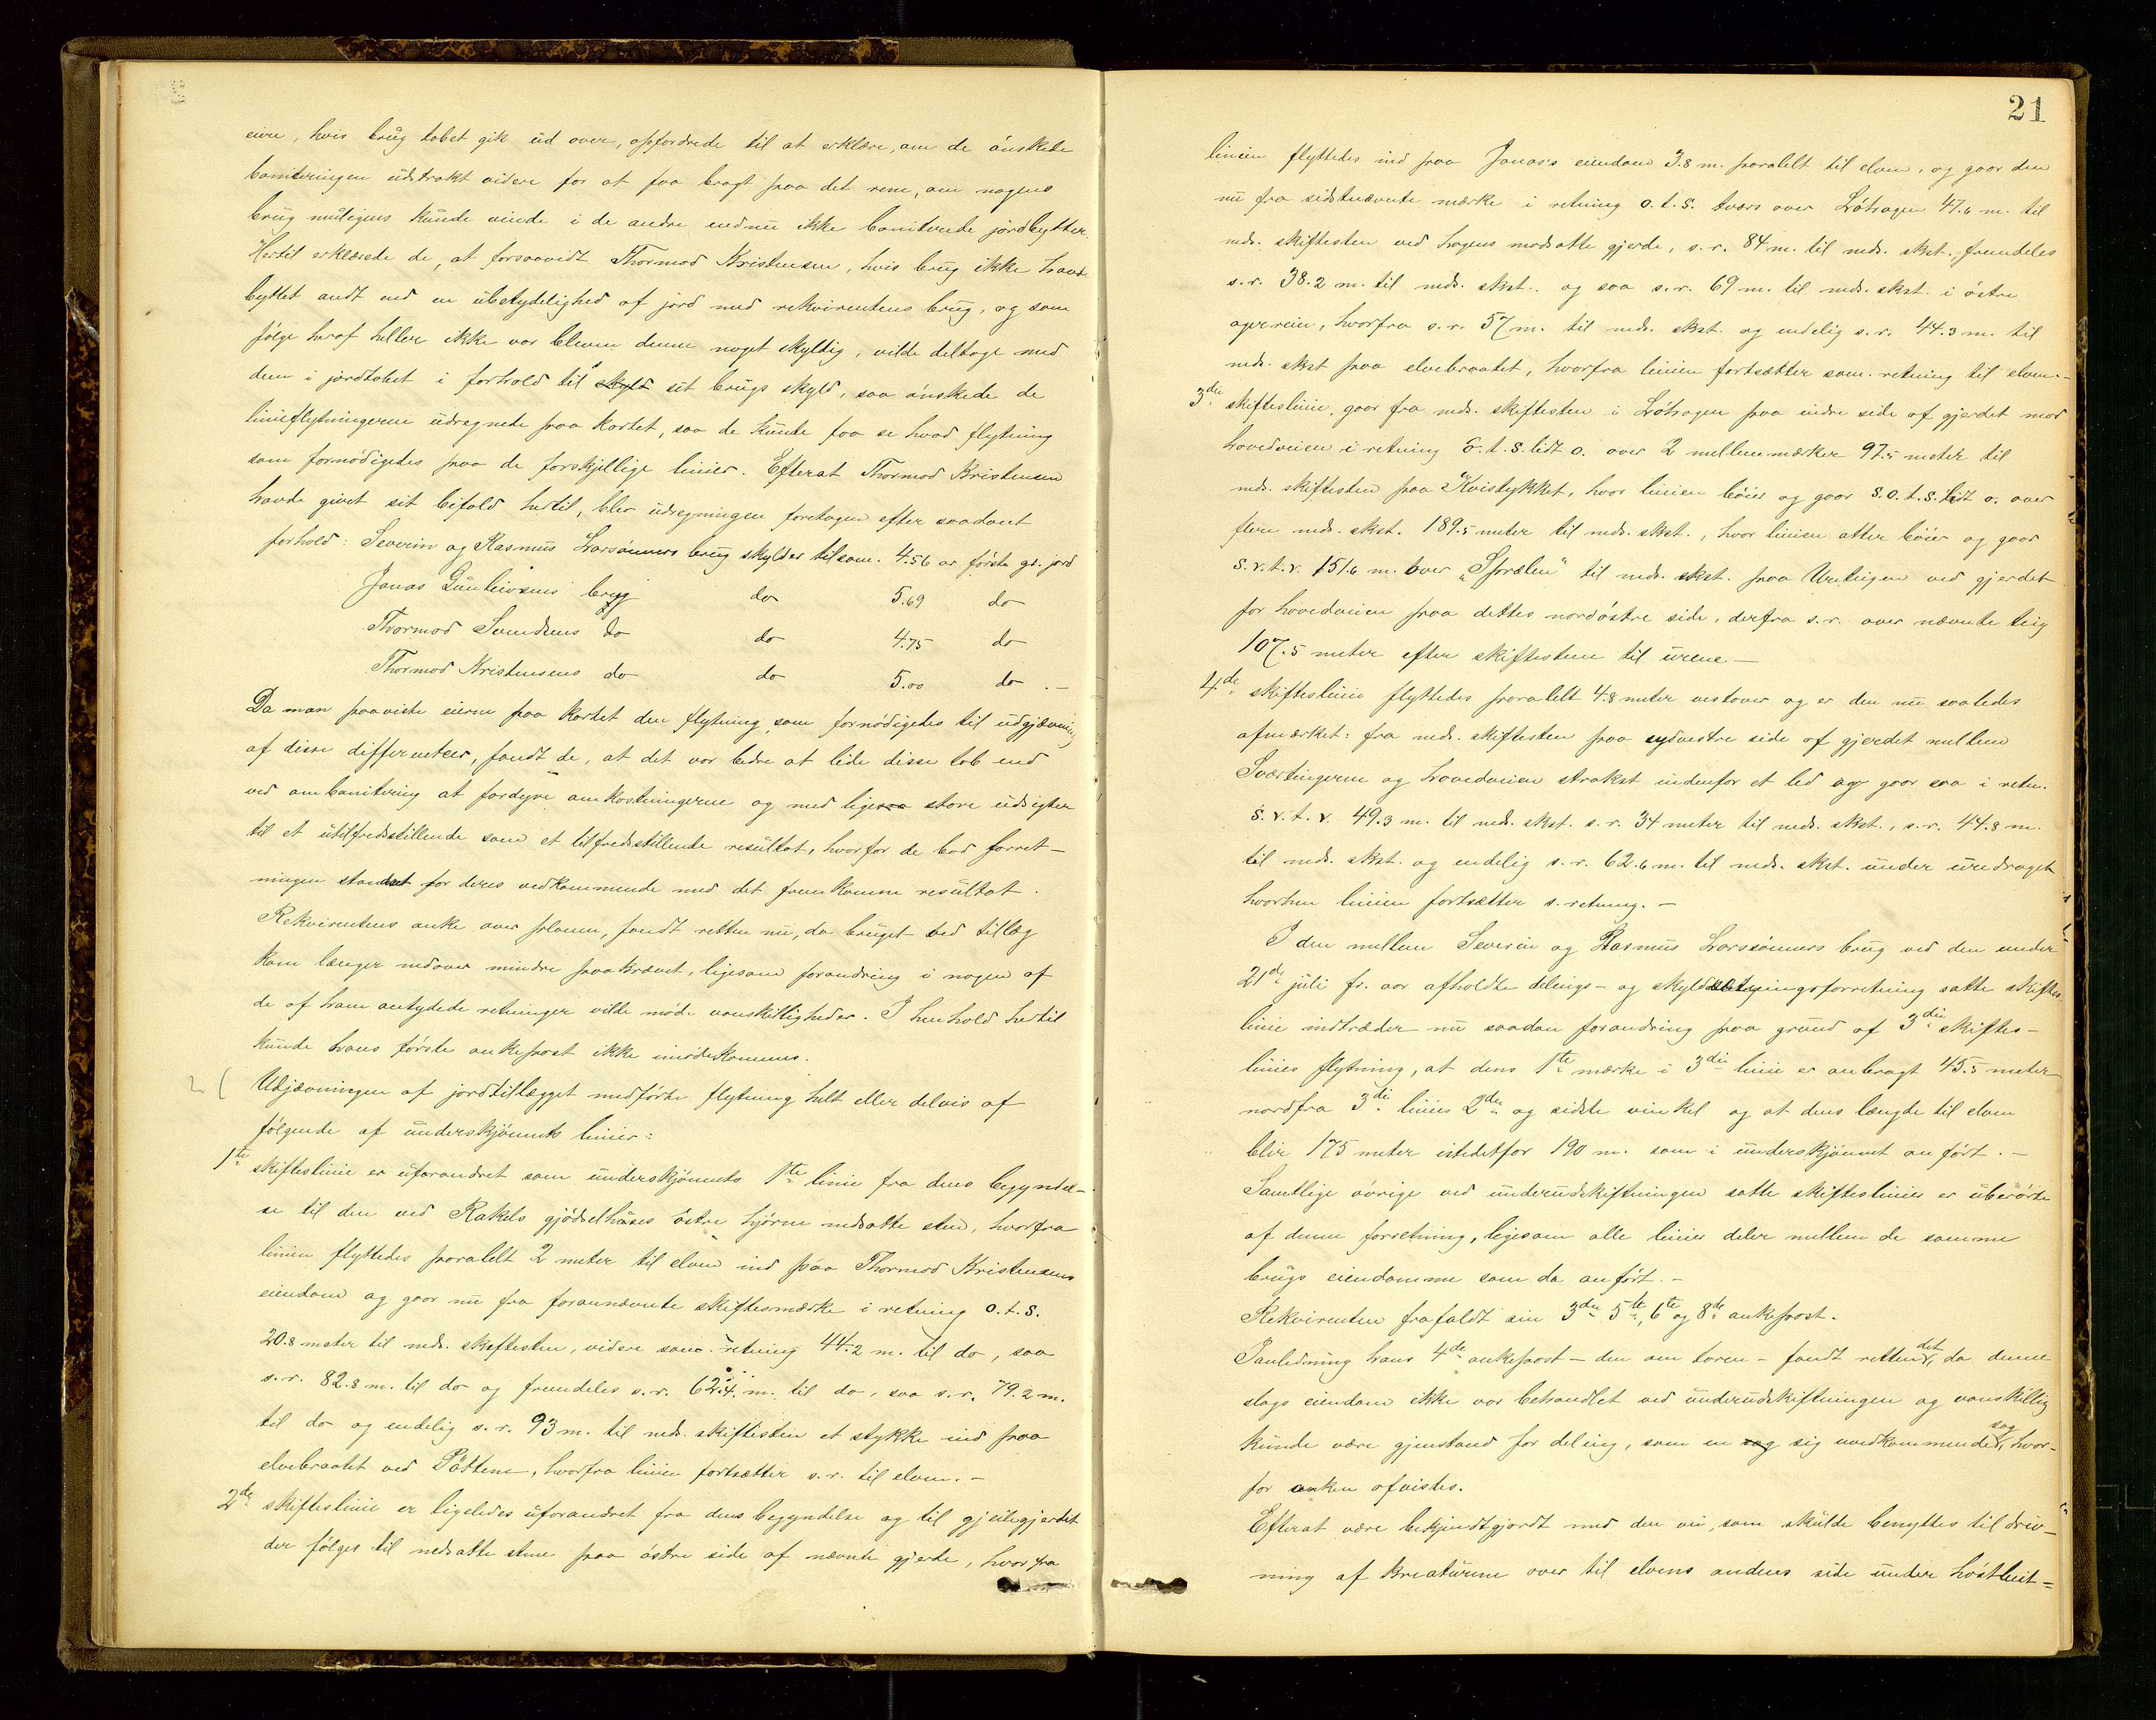 eiere, hvis brug tabet gik ud over, opfordrede til at erklære, om de ønskede
boniteringen udstrakt videre for at faa bragt paa det rene, om nogens
brug muligens kunde vinde i de andre endnu ikke boniterede jordbytter.
Hertil erklærede de, at forsaavidt Thormod Kristensen, hvis brug ikke havde
byttet andt end en ubetydelighed af jord med rekvirentens brug, og som
følge heraf heller ikke var bleven denne noget skyldig, vilde deltage med
dem i jordtabet i forhold til skyld sit brugs skyld, saa ønskede de
linieflytningerne udregnede paa kartet, saa de kunde faa se hvad flytning
som fornødigedes paa de forskjellige linier. Efterat Thormod Kristensen
havde givet sit bifald hertil, blev udregningen foretagen efter saadant
forhold: Severin og Rasmus Larsønners brug skylder tilsam. 4.56 ar første gr. jord
Jonas Gunleivsens brug do 5.69 do
Thormod Svendsens do do 4.75 do
Thormod Kristensens do do 5.00 do. —
Da man paaviste eierne paa kartet den flytning, som fornødigedes til udgjævning
af disse differentser, fandt de, at det var bedre at lide disse tab end
ved ombonitering at fordyre omkostningerne og med ligesaa store udsigter
til et utilfredsstillende som et tilfredsstillende resultat, hvorfor de bad forret-
ningen standset for deres vedkommende med det fremkomne resultat.
Rekvirentens anke over planen, fandt retten nu, da bruget ved tillæg
kom længer nedover mindre paakrævet, ligesom forandring i nogen af
de af ham antydede retninger vilde møde vanskeligheder. I henhold hertil
kunde hans første ankepost ikke imødekommes.
Udjævningen af jordtillægget medførte flytning helt eller delvis af
følgende af underskjønnets linier:
1te skifteslinie er uforandret som underskjønnets 1te linie fra dens begyndel-
se til den ved Rakels gjødselhuses østre hjørne nedsatte sten, hvorfra
linien flyttedes paralelt 2 meter til elven ind paa Thormod Kristensens
eiendom og gaar nu fra forannævnte skiftesmærke i retning o.t.s.
20.8 meter til neds. skiftesten, videre sam. retning 44.2 m. til do, saa
s.r. 82.8 m. til do og fremdeles s.r. 62.4 m. til do, saa s.r. 79.2 m.
til do og endelig s.r. 93 m. til neds. skiftesten et stykke ind paa
elvebraatet ved Pøttene, hvorfra linien fortsætter s.r. til elven. —
2den skifteslinie er ligeledes uforandret fra dens begyndelse og til gjeilegjerdet
der følges til nedsatte sten paa østre side af nævnte gjerde, hvorfra
21
linien flyttedes ind paa Jonas's eiendom 3.8 m. paralelt til elven, og gaar den
nu fra sidstnævnte mærke i retning o.t.s. tværs over Løhagen 47.6 m. til
neds. skiftesten ved hagens modsatte gjerde, s.r. 84 m. til neds. skst., fremdeles
s.r. 38.2 m. til neds. skst. og saa s.r. 69 m. til neds. skst. i østre
agerrein, hvorfra s.r. 57 m. til neds. skst. og endelig s.r. 44.3 m. til
neds. skst paa elvebraatet, hvorfra linien fortsætter sam. retning til elven. —
3die skifteslinie, gaar fra neds. skiftesten i Løhagen paa indre side af gjerdet mod
hovedveien i retning o.t.s. lidt o. over 2 mellemmærker 97.5 meter til
neds. skiftesten paa Kvistykket, hvor linien bøier og gaar s.o.t.s. lidt o. over
flere neds. skst. 189.5 meter til neds. skst., hvor linien atter bøier og gaar
s.v.t.v. 151.6 m. over "Sprælen" til neds. skst. paa Urateigen ved gjerdet
for hovedveien paa dettes nordøstre side, derfra s.r. over nævnte teig
107.5 meter efter skiftestene til urene. —
4de skifteslinie flyttedes paralelt 4.8 meter vestover og er den nu saaledes
afmærket: fra neds. skiftesten paa sydvestre side af gjerdet mellem
Sværtingerne og hovedveien strakst indenfor et led og gaar saa i retn.
s.v.t.v. 49.3 m. til neds. skst. s.r. 34 meter til neds. skst., s.r. 44.8 m.
til neds. skst. og endelig s.r. 62.6 m. til neds. skst. under uredraget
hvorhen linien fortsætter s. retning. —
I den mellem Severin og Rasmus Larssønners brug ved den under
21de juli fr. aar afholdte delings- og skyldsætningsforretning satte skiftes-
linie indtræder nu saadan forandring paa grund af 3die skiftes-
linies flytning, at dens 1te mærke i 3die linie er anbragt 45.5 meter
nordfra 3die linies 2den og sidste vinkel og at dens længde til elven
blir 175 meter istedetfor 190 m. som i underskjønnet anført. —
Samtlige øvrige ved underudskiftningen satte skifteslinier er uberørte
af denne forretning, ligesom alle linier deler mellem de samme
brugs eiendomme som da anført. —
Rekvirenten frafaldt sin 3die 5te, 6te og 8de ankepost.
I anledning hans 4de ankepost — den om toren — fandt retten det, da denne
slags eiendom ikke var behandlet ved underudskiftningen og vanskelig
kunde være gjenstand for deling, som en sag sig uvedkommende sag, hvor-
for anken afvistes.
Efterat være bekjendtgjordt med den vei, som skulde benyttes til driv-
ning af kreaturene over til elvens andens side under høstbeit-